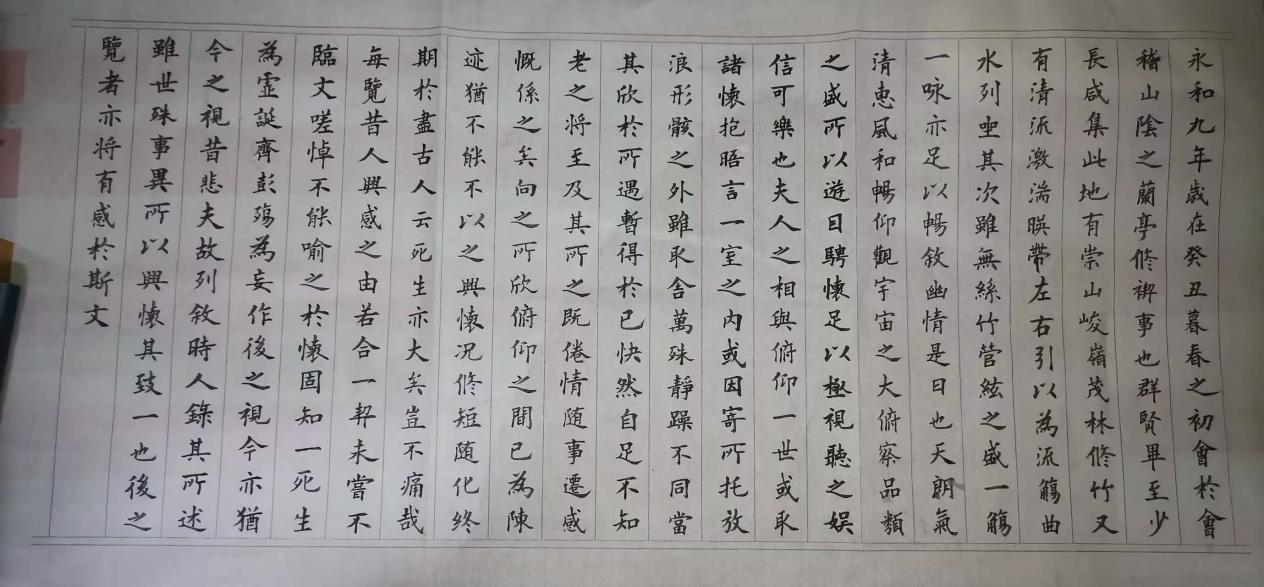 永和九年歲在癸丑暮春之初會於會
稽山陰之蘭亭脩禊事也群賢畢至少
長咸集此地有崇山峻嶺茂林脩竹又
有清流激湍暎帶左右引以為流觴曲
水列坐其次雖無絲竹管絃之盛一觴
一咏亦足以暢敘幽情是日也天朗氣
清惠風和暢仰觀宇宙之大俯察品類
之盛所以遊目騁懷足以極視聽之娛
信可樂也夫人之相與俯仰一世或取
諸懷抱晤言一室之內或因寄所托放
浪形骸之外雖取舍萬殊靜躁不同當
其欣於所遇暫得於己快然自足不知
老之將至及其所之既倦情随事遷感
慨係之矣向之所欣俯仰之間已為陳
迹猶不能不以之興懷況脩短随化終
期於盡古人云死生亦大矣豈不痛哉
每覽昔人興感之由若合一契未嘗不
臨文嗟悼不能喻之於懷固知一死生
為虛誕齊彭殤為妄作後之視今亦猶
今之視昔悲夫故列敘時人錄其所述
雖世殊事異所以興懷其致一也後之
覽者亦將有感於斯文